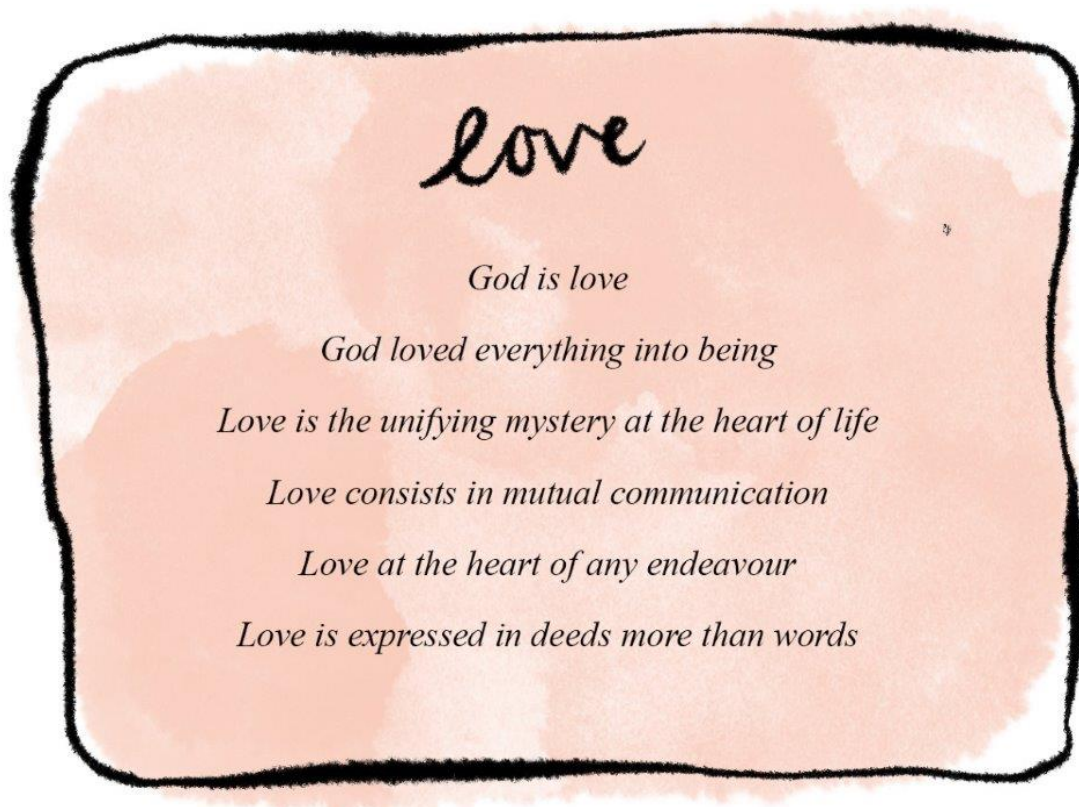 love
God is love
God loved everything into being
Love is the unifying mystery at the heart of life
Love consists in mutual communication
Love at the heart of any endeavour
Love is expressed in deeds more than words